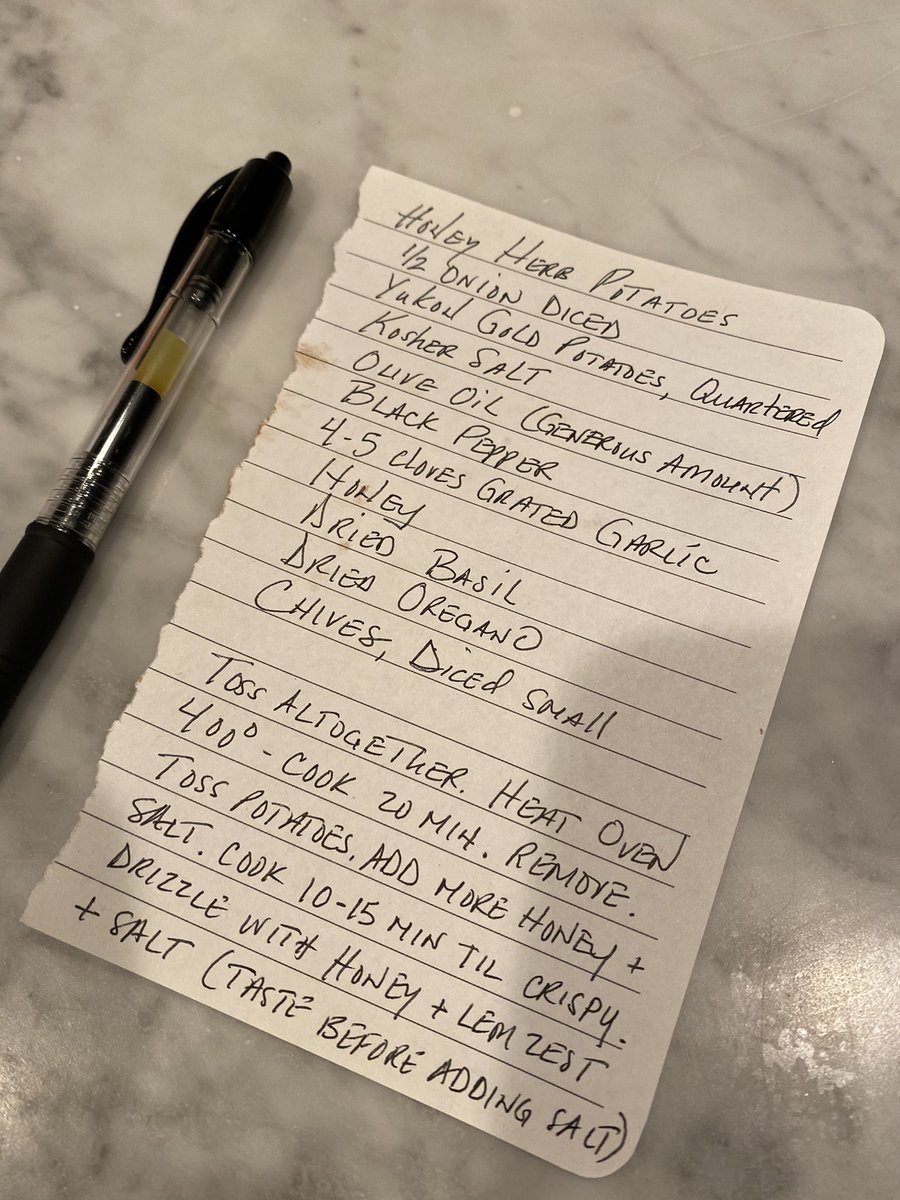 Honey Herb Potatoes
1/2 Onion Diced
Yukon Gold Potatoes, Quartered
Kosher Salt
Olive Oil (Generous Amount)
Black Pepper
4-5 cloves Grated Garlic
Honey
Dried Basil
Dried Oregano
Chives, Diced Small
Toss Altogether. Heat Oven
400° - Cook 20 min. Remove.
Toss Potatoes. Add more Honey +
Salt. Cook 10-15 min til crispy.
Drizzle with Honey + Lem zest
+ Salt (Taste before adding salt)